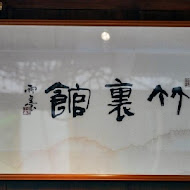 竹裏館